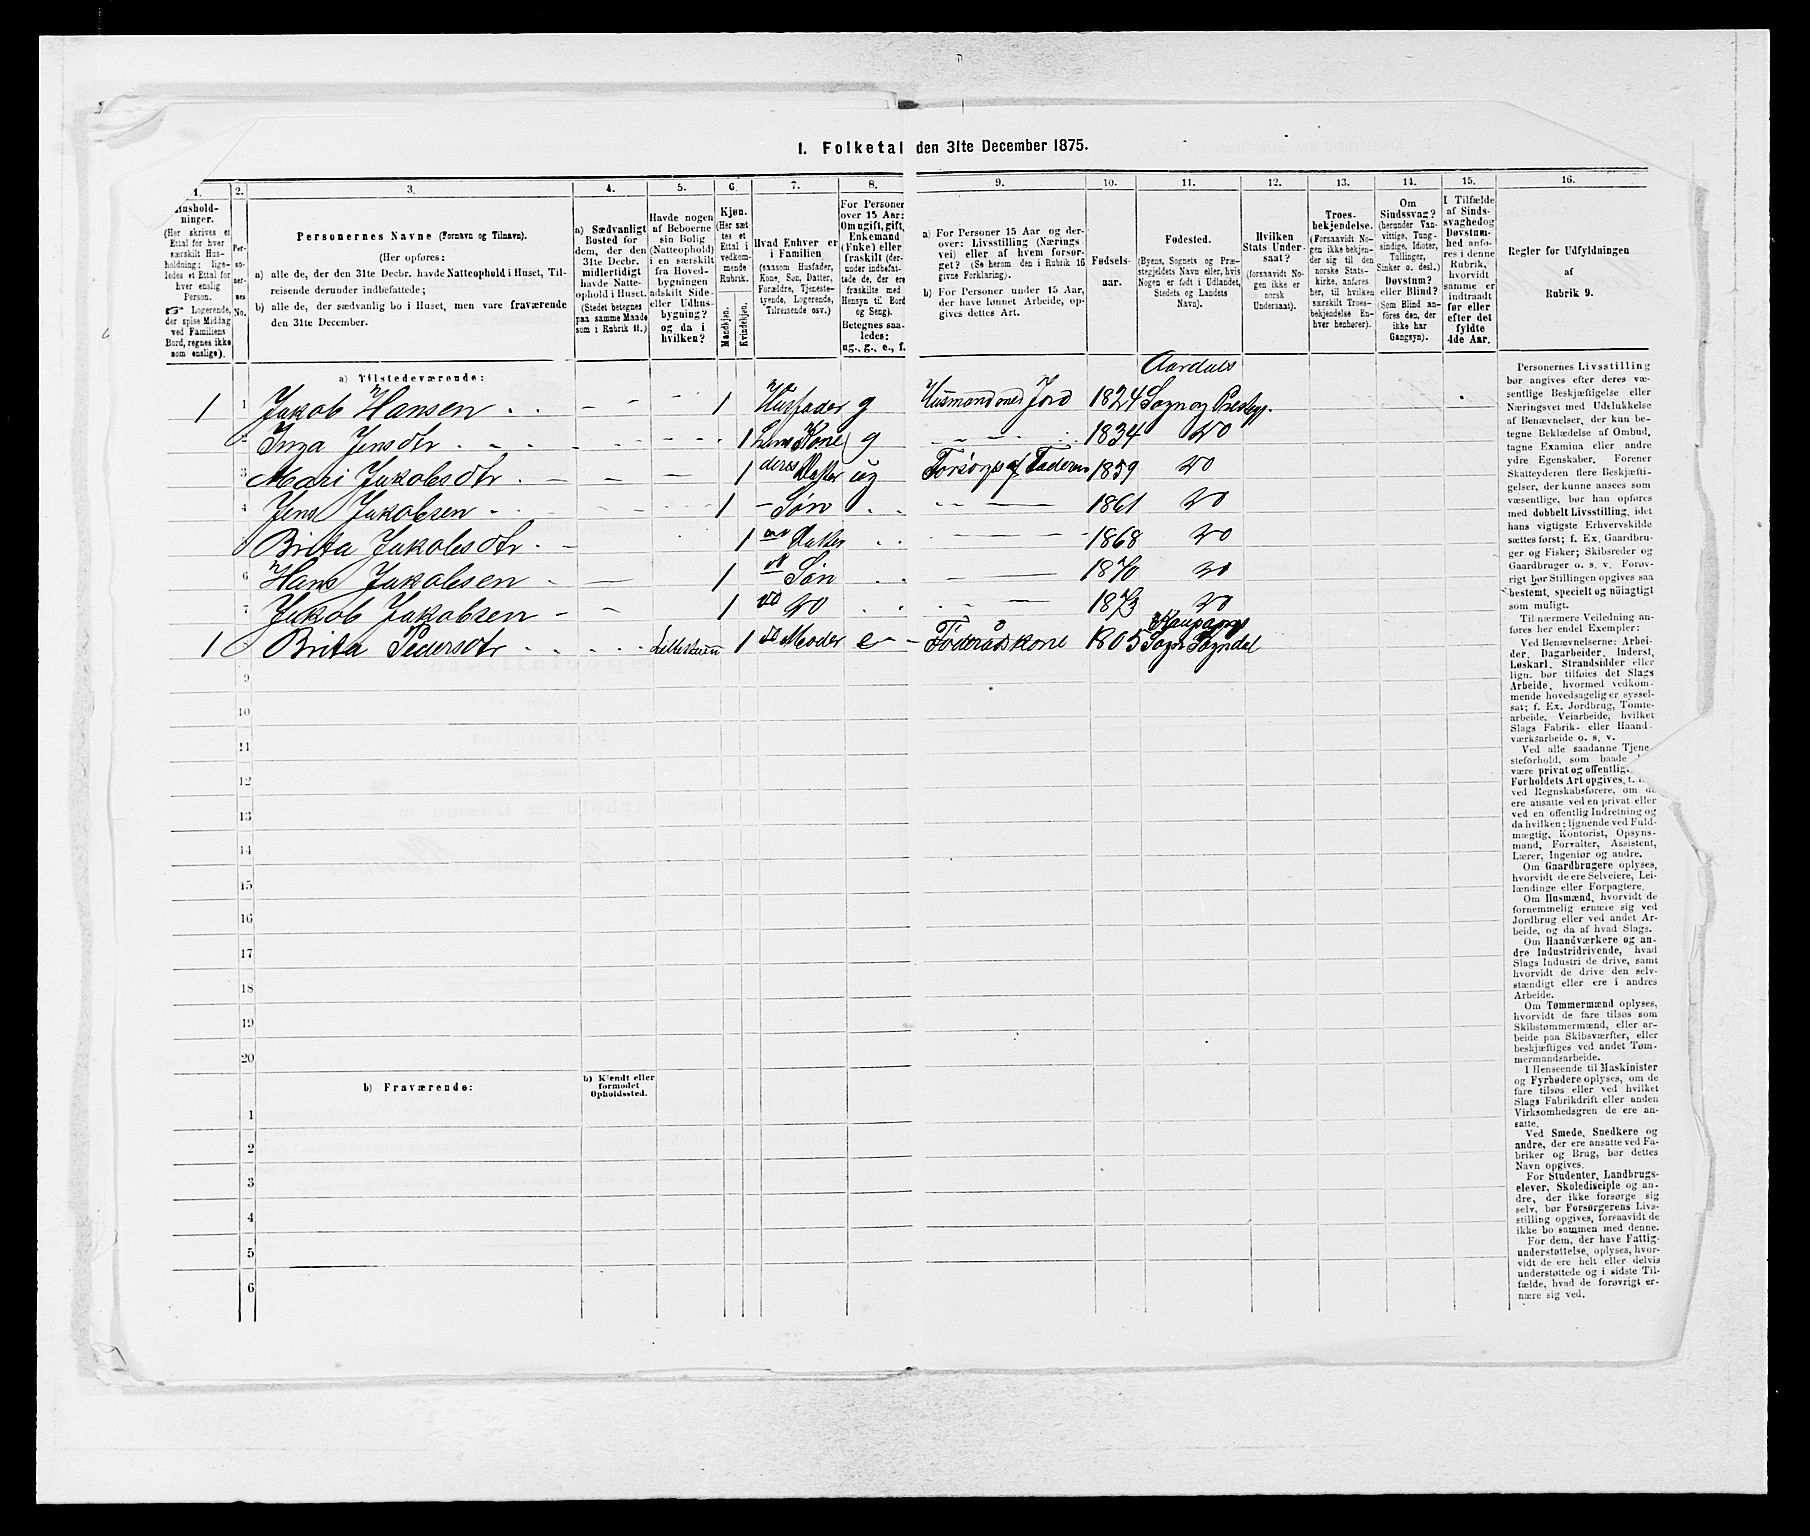 1. Folketal den 31te December 1875.
1. 2. 3. 4. 5. 6. 7. 8. 9. 10. 11. 12. 13. 14. 15. 16.
Hushold-
ninger.
(Her skrives et
Ettal for hver
særskilt Hus-
holdning; lige-
ledes et Ettal for
hver enslig
Person.
Logerende,
der spise Middag
ved Familiens
Bord, regnes ikke
som enslige).
Per-
so-
ner-
nes
No.
Personernes Navne (Fornavn og Tilnavn).
(Her opføres:
a) alle de, der den 31te Decbr. havde Natteophold i Huset, Til-
reisende derunder indbefattede;
b) alle de, der sædvanlig bo i Huset, men vare fraværende
den 31te December.
a) Sædvanligt
Bosted for
dem, der den
31te Decbr.
midlertidigt
havde Natte-
ophold i Huset.
(Stedet betegnes
paa samme Maade
som i Rubrik 11.)
Havde nogen
af Beboerne
sin Bolig
(Natteophold)
i en særskilt
fra Hoved-
bygningen
adskilt Side-
eller Udhus-
bygning?
og da i
hvilken?
Kjøn.
(Her sæt
tes et
Ettal i
vedkom-
mende
Rubrik.
Mandkjøn.
Kvindekjøn.
Hvad Enhver er
i Familien
(saasom Husfader,
Kone, Søn, Datter,
Forældre, Tjeneste-
tyende, Logerende,
Tilreisende osv.)
For Personer
over 15 Aar:
Om ugift, gift,
Enkemand
(Enke) eller
fraskilt (der-
under indbefat-
tede de, der ere
fraskilte med
Hensyn til Bord
og Seng).
Betegnes saa-
ledes:
ug., g., e., f.
a) For Personer 15 Aar og der-
over: Livsstilling (Nærings-
vei) eller af hvem forsør-
get? (Se herom den i Rubrik 16
givne Forklaring).
b) For Personer under 15 Aar,
der have lønnet Arbeide, op-
gives dettes Art.
Fødsels-
aar.
Fødested.
(Byens, Sognets og Præ-
stegjeldets Navn eller, hvis
Nogen er født i Udlandet,
Stedets og Landets
Navn).
Hvilken
Stats Under-
saat?
(forsaavidt No-
gen ikke er
norsk
Undersaat).
Troes-
bekjendelse.
(Forsaavidt No-
gen ikke bekjen-
der sig til den
norske Stats-
kirke, anføres
her, til hvilken
særskilt Troes-
bekjendelse En-
hver henhører).
Om
Sindssvag?
(herunder Van-
vittige, Tung-
sindige, Idioter,
Tullinger,
Sinker o. desl.)
Døvstum?
eller Blind?
(Som Blind an-
føres den, der
ikke har
Gangsyn).
I Tilfælde
af Sinds-
svaghed og
Døvstum-
hed anfø-
res i denne
Rubrik,
hvorvidt
samme er
indtraadt
før eller
efter det
fyldte
4de Aar.
Regler for Udfyldningen
af
Rubrik 9.
a) Tilstedeværende:
Aardals
1 1 Jakob Hansen 1 Husfader g Husmand med Jord 1824 Sogn og Presteg.
2 Inga Jensdtr 1 hans Kone g 1834 do
3 Mari Jakobsdtr 1 deres Datter ug Forsørges af Faderen 1859 do
4 Jens Jakobsen 1 Søn 1861 do
5 Brita Jakobsdtr 1 do Datter 1868 do
6 Hans Jakobsen 1 do Søn 1870 do
7 Jakob Jakobsen 1 do do 1873 do
Kaupangs
1 Brita Pedersdtr 1 do Moder e Føderådskone 1805 Sogn Sogndal
9
10
11
12
13
14
15
16
17
18
19
20
b) Fraværende:
b) Kjendt eller
formodet
Opholdssted.
1
2
3
4
5
6
Personernes Livsstilling
bør angives efter deres væ-
sentlige Beskjæftigelse eller
Næringsvei med Udelukkelse
af Benævnelser, der kun be-
tegne Beklædelse af Ombud,
tagne Examina eller andre
ydre Egenskaber. Forener
Skatteyderen flere Beskjæfti-
gelser, der kunne ansees som
væsentlige, bør han opføres
med dobbelt Livsstilling, idet
hans vigtigste Erhvervskilde
sættes først; f. Ex. Gaardbru-
ger og Fisker; Skibsreder og
Gaardbruger o. s. v. Forøv-
rigt bør Stillingen opgives saa
bestemt, specielt og nøiagtigt
som muligt.
Til nærmere Veiledning an-
føres her endel Exempler:
Ved Benævnelserne: Arbei-
der, Dagarbeider, Inderst,
Løskarl, Strandsidder eller
lign. bør tilføies det Slags
Arbeide, hvormed vedkom-
mende hovedsagelig er syssel-
sat; f. Ex. Jordbrug, Tomte-
arbeide, Veiarbeide, hvilket
Slags Fabrik- eller Haand-
værksarbeide o. s. v.
Ved alle saadanne Tjene-
steforhold, som baade
være privat og offentlig,
Forholdets Art opgives, t.
ved Regnskabsførere, om de
ere ansatte ved en privat eller
ved en offentlig Indretning og
da hvilken; lignende ved Fuld-
mægtig, Kontorist, Opsyns-
mand, Forvalter, Assistent,
Lærer, Ingeniør og andre.
Om Gaardbrugere oplyses,
hvorvidt de ere Selveiere, Lei-
lændinge eller Forpagtere.
Om Husmænd, hvorvidt de
fornemmelig ernære sig ved
Jordbrug eller ved andet Ar-
beide, og da af hvad Slags.
Om Haandværkere og an-
dre Industridrivende, hvad
Slags Industri de drive, samt
hvorvidt de drive den selv-
stændigt eller ere i andres
Arbeide.
Om Tømmermænd oplyses,
hvorvidt de fare tilsøs som
Skibstømmermænd, eller ar-
beide paa Skibsværfter, eller
beskjæftiges ved andet Tøm-
mermandsarbeide.
I Henseende til Maskinister
og Fyrbødere oplyses, om de
fare tilsøs eller ved hvilket
Slags Fabrikdrift eller anden
Virksomhedsgren de ere an-
satte.
Ved Smede, Snedkere og
andre, der ere ansatte ved Fa-
briker og Brug, bør dettes
Navn opgives.
For Studenter, Landbrugs-
elever, Skoledisciple og an-
dre, der ikke forsørge sig
selv, bør Forsørgerens Livs-
stilling opgives, forsaavidt de
ikke bo sammen med denne.
For dem, der have Fattig-
understøttelse, oplyses, hvor-
vidt de ere helt eller delvis
understøttede og i sidste Til-
fælde, hvad de forøvrigt er-
nære sig ved.